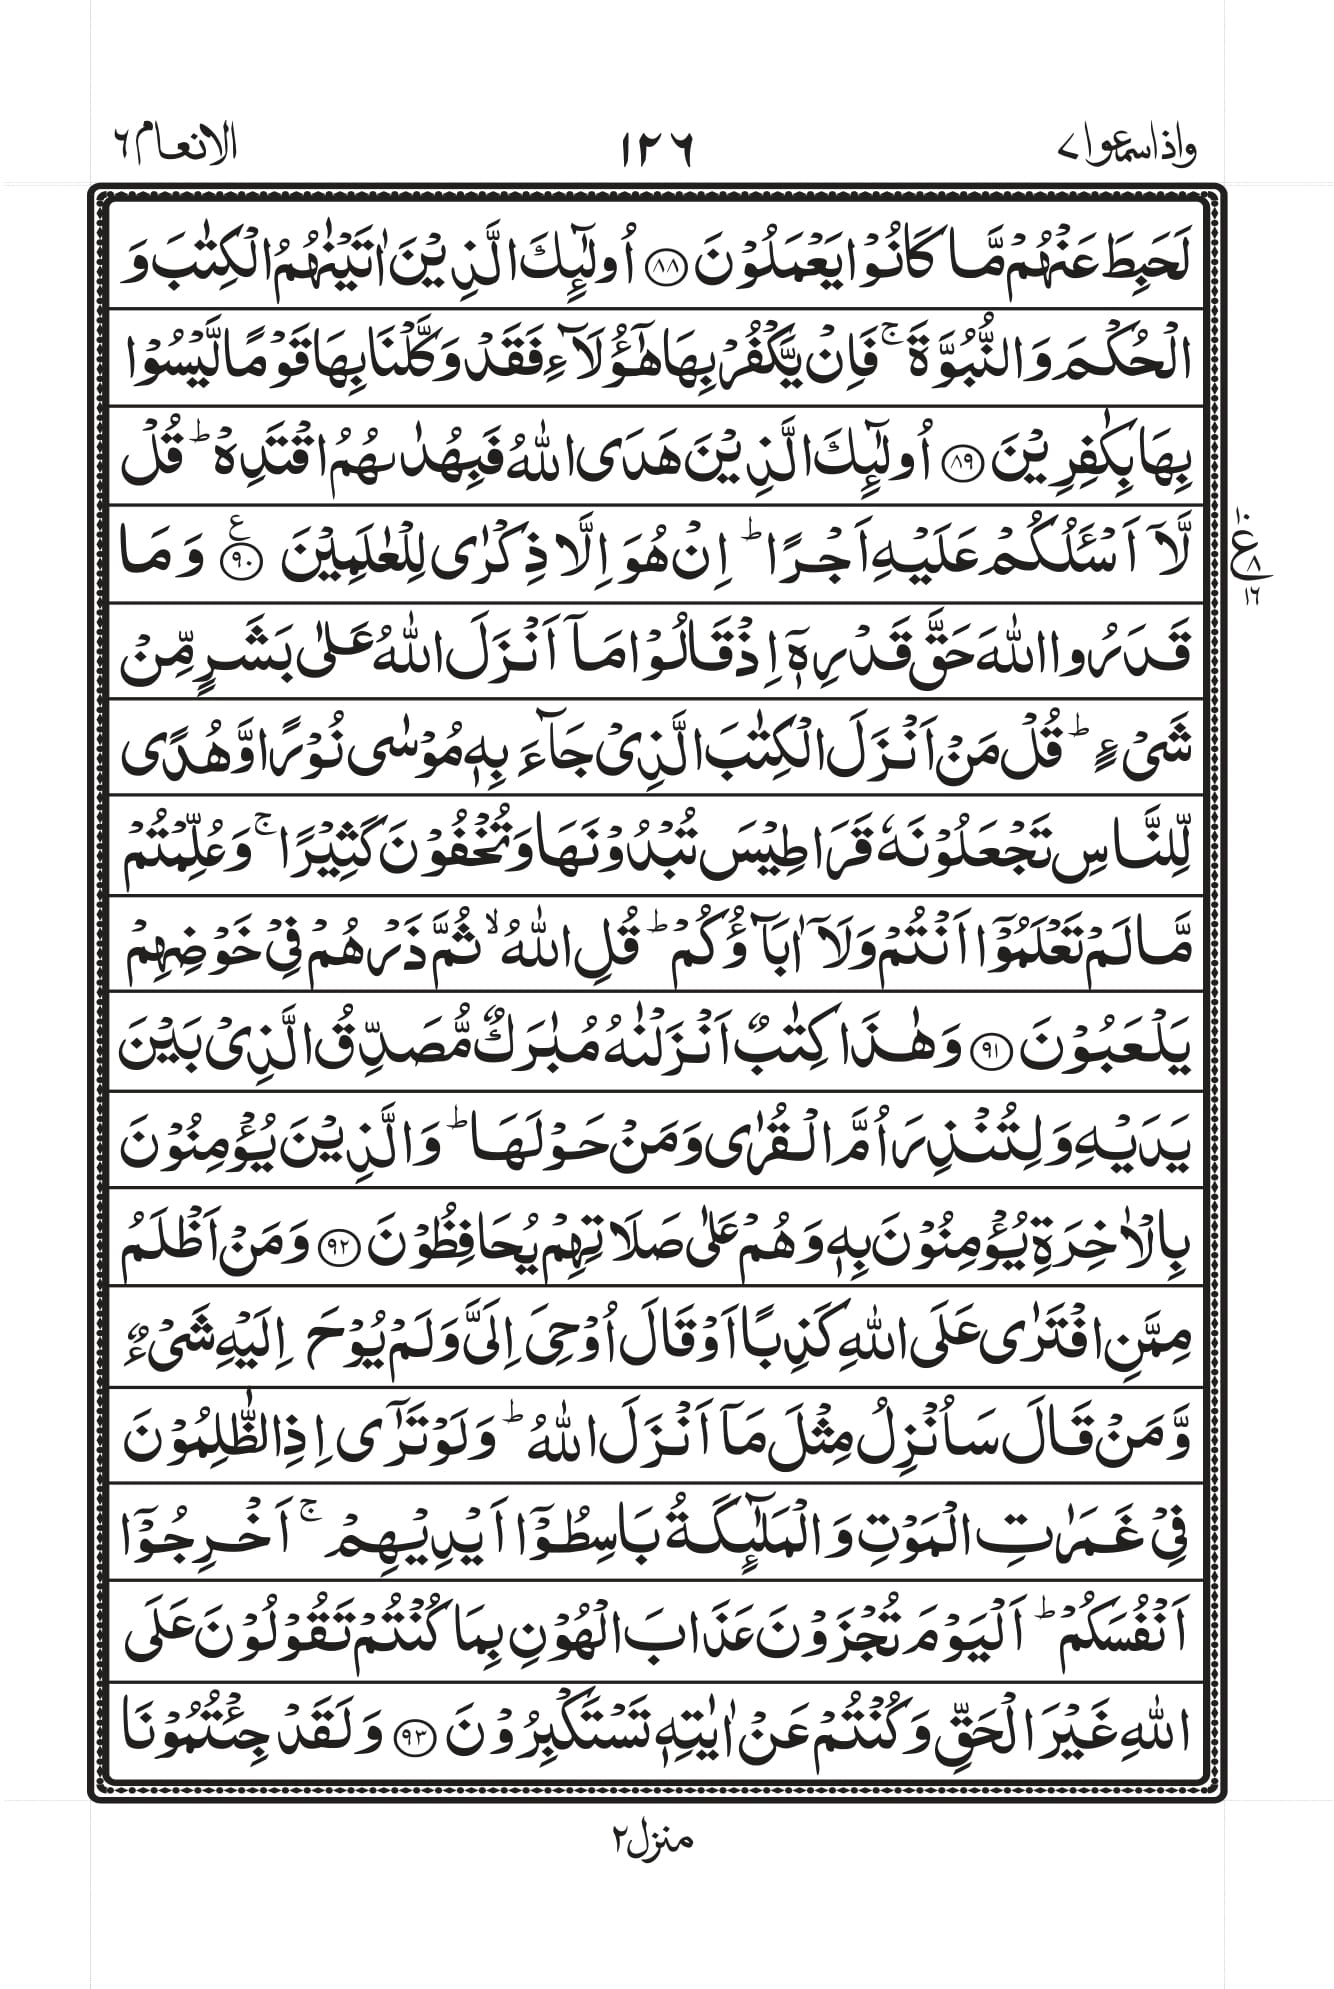 واذاسمعوا ٧
١٢٦
الانعام ٦
لَحَبِطَ عَنْهُمْ مَّا كَانُوْا يَعْمَلُوْنَ ﴿٨٨﴾ اُولٰٓئِكَ الَّذِيْنَ اٰتَيْنٰهُمُ الْكِتٰبَ وَ
الْحُكْمَ وَالنُّبُوَّةَ ۚ فَاِنْ يَّكْفُرْ بِهَا هٰٓؤُلَآءِ فَقَدْ وَكَّلْنَا بِهَا قَوْمًا لَّيْسُوْا
بِهَا بِكٰفِرِيْنَ ﴿٨٩﴾ اُولٰٓئِكَ الَّذِيْنَ هَدَى اللّٰهُ فَبِهُدٰىهُمُ اقْتَدِهْ ؕ قُلْ
لَّآ اَسْـَٔلُكُمْ عَلَيْهِ اَجْرًا ؕ اِنْ هُوَ اِلَّا ذِكْرٰى لِلْعٰلَمِيْنَ ﴿٩٠﴾ ع وَمَا
١٠ ع ٨ ١٦
قَدَرُوا اللّٰهَ حَقَّ قَدْرِهٖٓ اِذْ قَالُوْا مَآ اَنْزَلَ اللّٰهُ عَلٰى بَشَرٍ مِّنْ
شَيْءٍ ؕ قُلْ مَنْ اَنْزَلَ الْكِتٰبَ الَّذِيْ جَآءَ بِهٖ مُوْسٰى نُوْرًا وَّهُدًى
لِّلنَّاسِ تَجْعَلُوْنَهٗ قَرَاطِيْسَ تُبْدُوْنَهَا وَتُخْفُوْنَ كَثِيْرًا ۚ وَعُلِّمْتُمْ
مَّا لَمْ تَعْلَمُوْٓا اَنْتُمْ وَلَآ اٰبَآؤُكُمْ ؕ قُلِ اللّٰهُ ۙ ثُمَّ ذَرْهُمْ فِيْ خَوْضِهِمْ
يَلْعَبُوْنَ ﴿٩١﴾ وَهٰذَا كِتٰبٌ اَنْزَلْنٰهُ مُبٰرَكٌ مُّصَدِّقُ الَّذِيْ بَيْنَ
يَدَيْهِ وَلِتُنْذِرَ اُمَّ الْقُرٰى وَمَنْ حَوْلَهَا ؕ وَالَّذِيْنَ يُؤْمِنُوْنَ
بِالْاٰخِرَةِ يُؤْمِنُوْنَ بِهٖ وَهُمْ عَلٰى صَلَاتِهِمْ يُحَافِظُوْنَ ﴿٩٢﴾ وَمَنْ اَظْلَمُ
مِمَّنِ افْتَرٰى عَلَى اللّٰهِ كَذِبًا اَوْ قَالَ اُوْحِيَ اِلَيَّ وَلَمْ يُوْحَ اِلَيْهِ شَيْءٌ
وَّمَنْ قَالَ سَاُنْزِلُ مِثْلَ مَآ اَنْزَلَ اللّٰهُ ؕ وَلَوْ تَرٰٓى اِذِ الظّٰلِمُوْنَ
فِيْ غَمَرٰتِ الْمَوْتِ وَالْمَلٰٓئِكَةُ بَاسِطُوْٓا اَيْدِيْهِمْ ۚ اَخْرِجُوْٓا
اَنْفُسَكُمْ ؕ اَلْيَوْمَ تُجْزَوْنَ عَذَابَ الْهُوْنِ بِمَا كُنْتُمْ تَقُوْلُوْنَ عَلَى
اللّٰهِ غَيْرَ الْحَقِّ وَكُنْتُمْ عَنْ اٰيٰتِهٖ تَسْتَكْبِرُوْنَ ﴿٩٣﴾ وَلَقَدْ جِئْتُمُوْنَا
منزل ٢